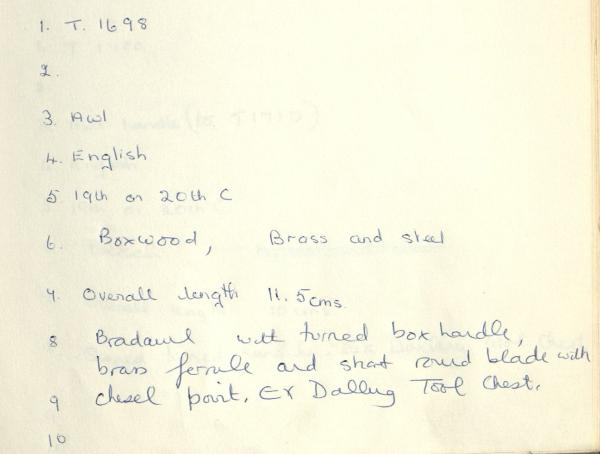 1. T. 1698
2.
3. Awl
4. English
5 19th or 20th C
6. Boxwood, Brass and steel
7. Overall length 11.5cms.
8 Bradawl with turned box handle,
brass ferrule and short round blade with
9 chisel point. Ex Tool Chest.
10